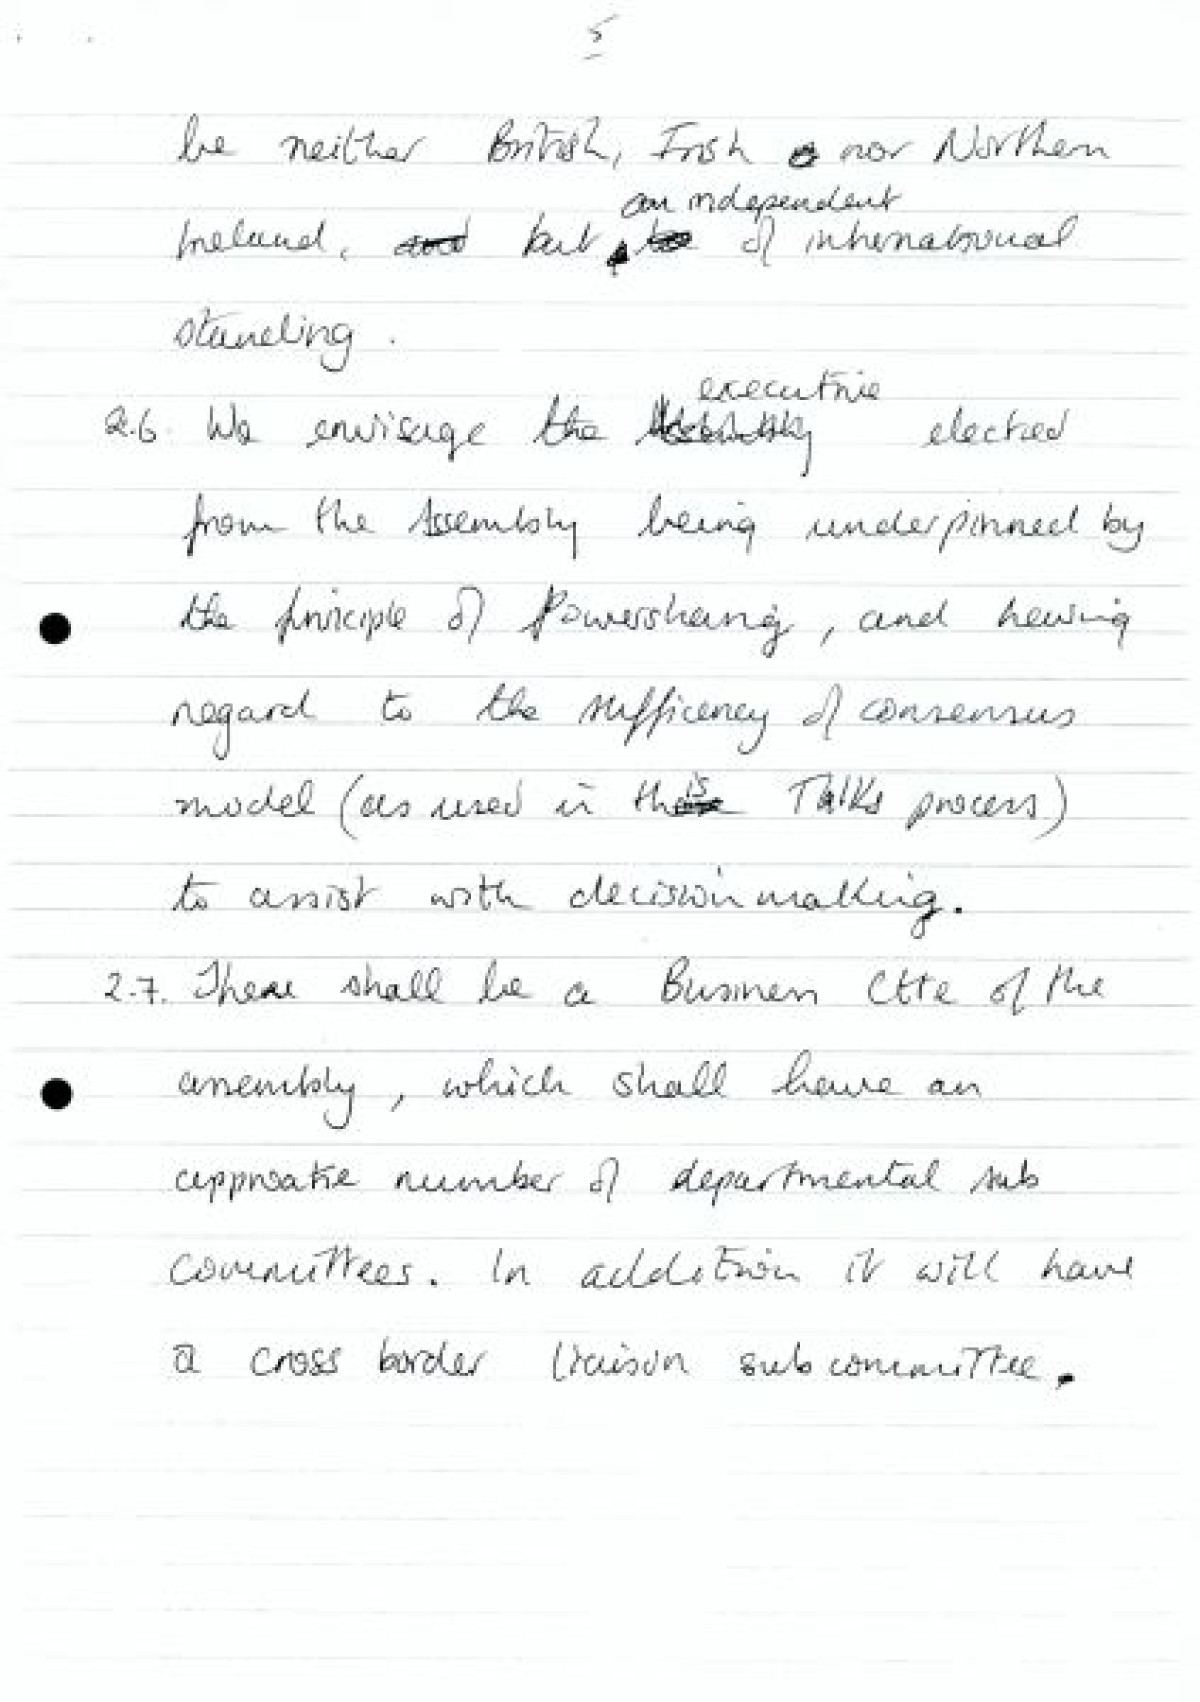 5
be neither British, Irish nor Northern
an independent
Ireland, and but of international
standing.
executive
2.6. We envisage the Assembly elected
from the Assembly being underpinned by
the principle of Powersharing, and having
regard to the sufficency of consensus
model (as used in this Talks process)
to assist with decision making.
2.7. There shall be a Business Ctte of the
assembly, which shall have an
approatie number of departmental sub
committees. In addition it will have
a cross border liaison subcommittee.